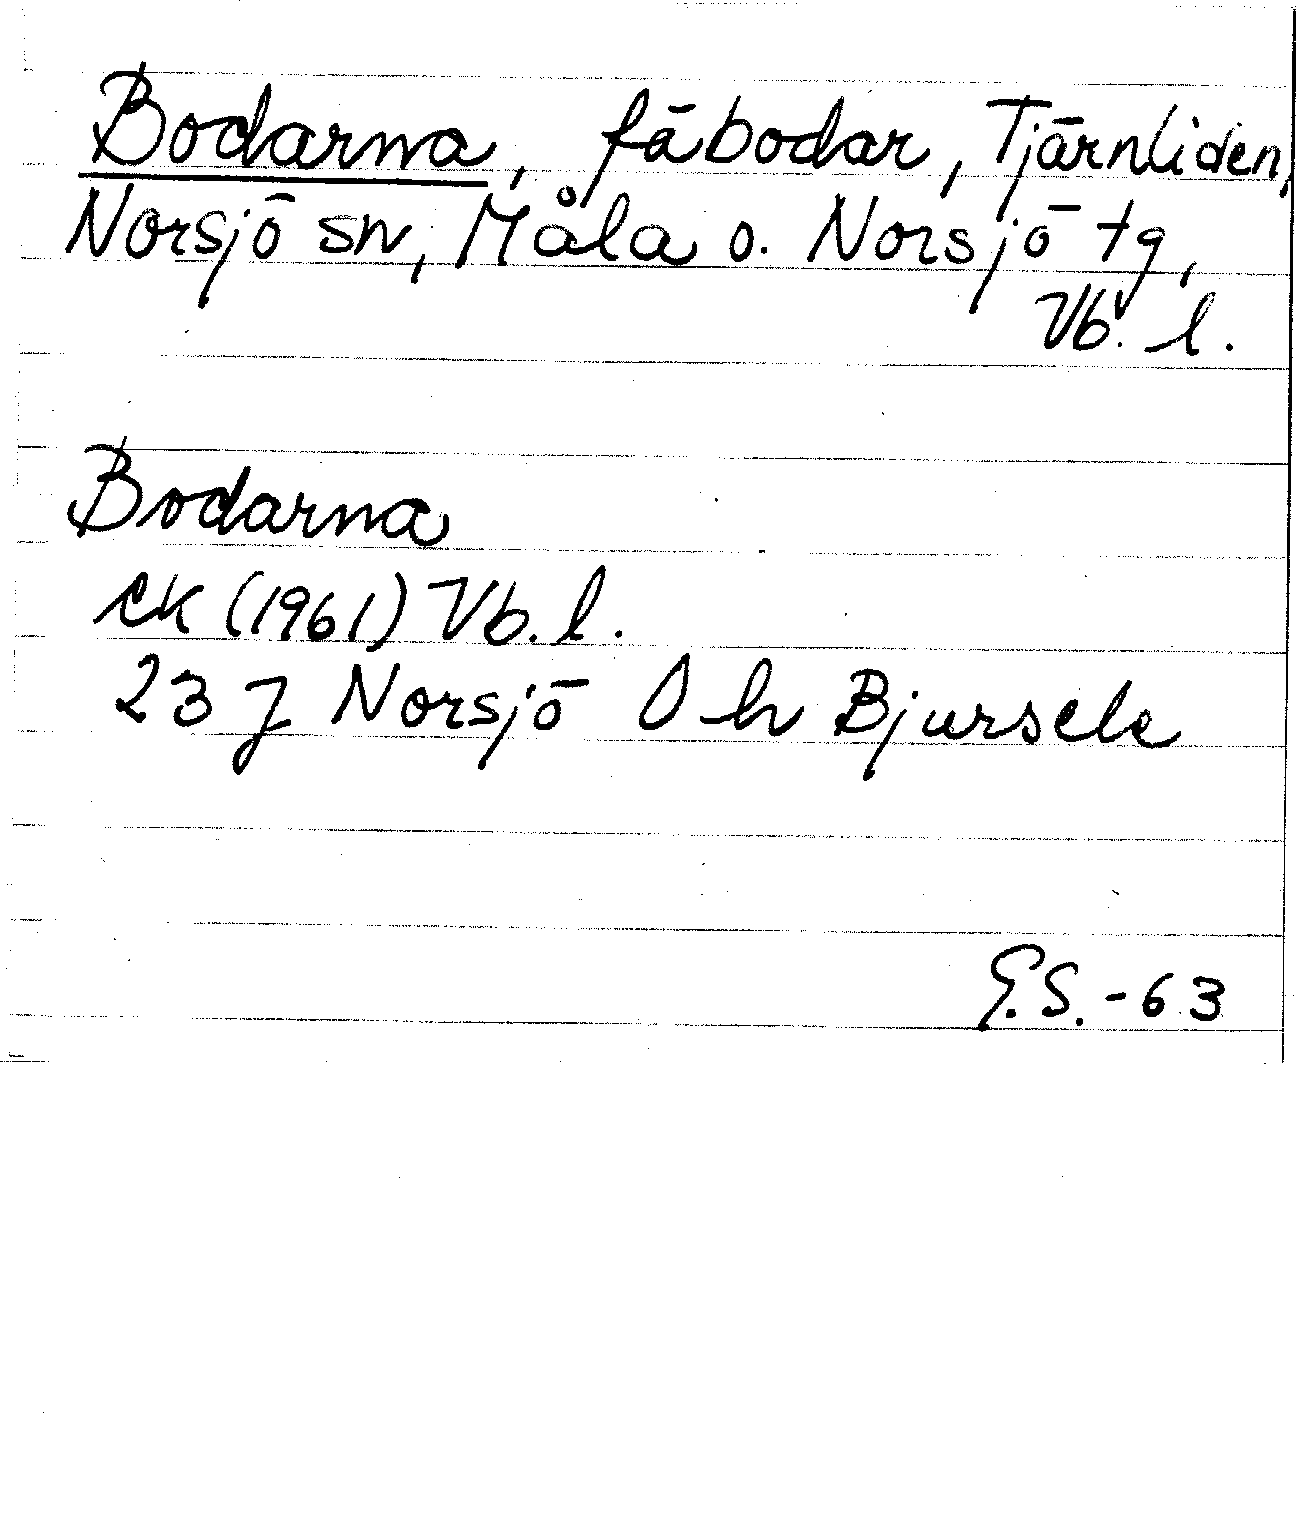 Bodarna, fäbodar, Tjärnliden,
Norsjö sn, Måla o. Norsjö tg,
Vb. l.
Bodarna
ek (1961) Vb. l.
23 J Norsjö O h Bjursele
G.S. - 63